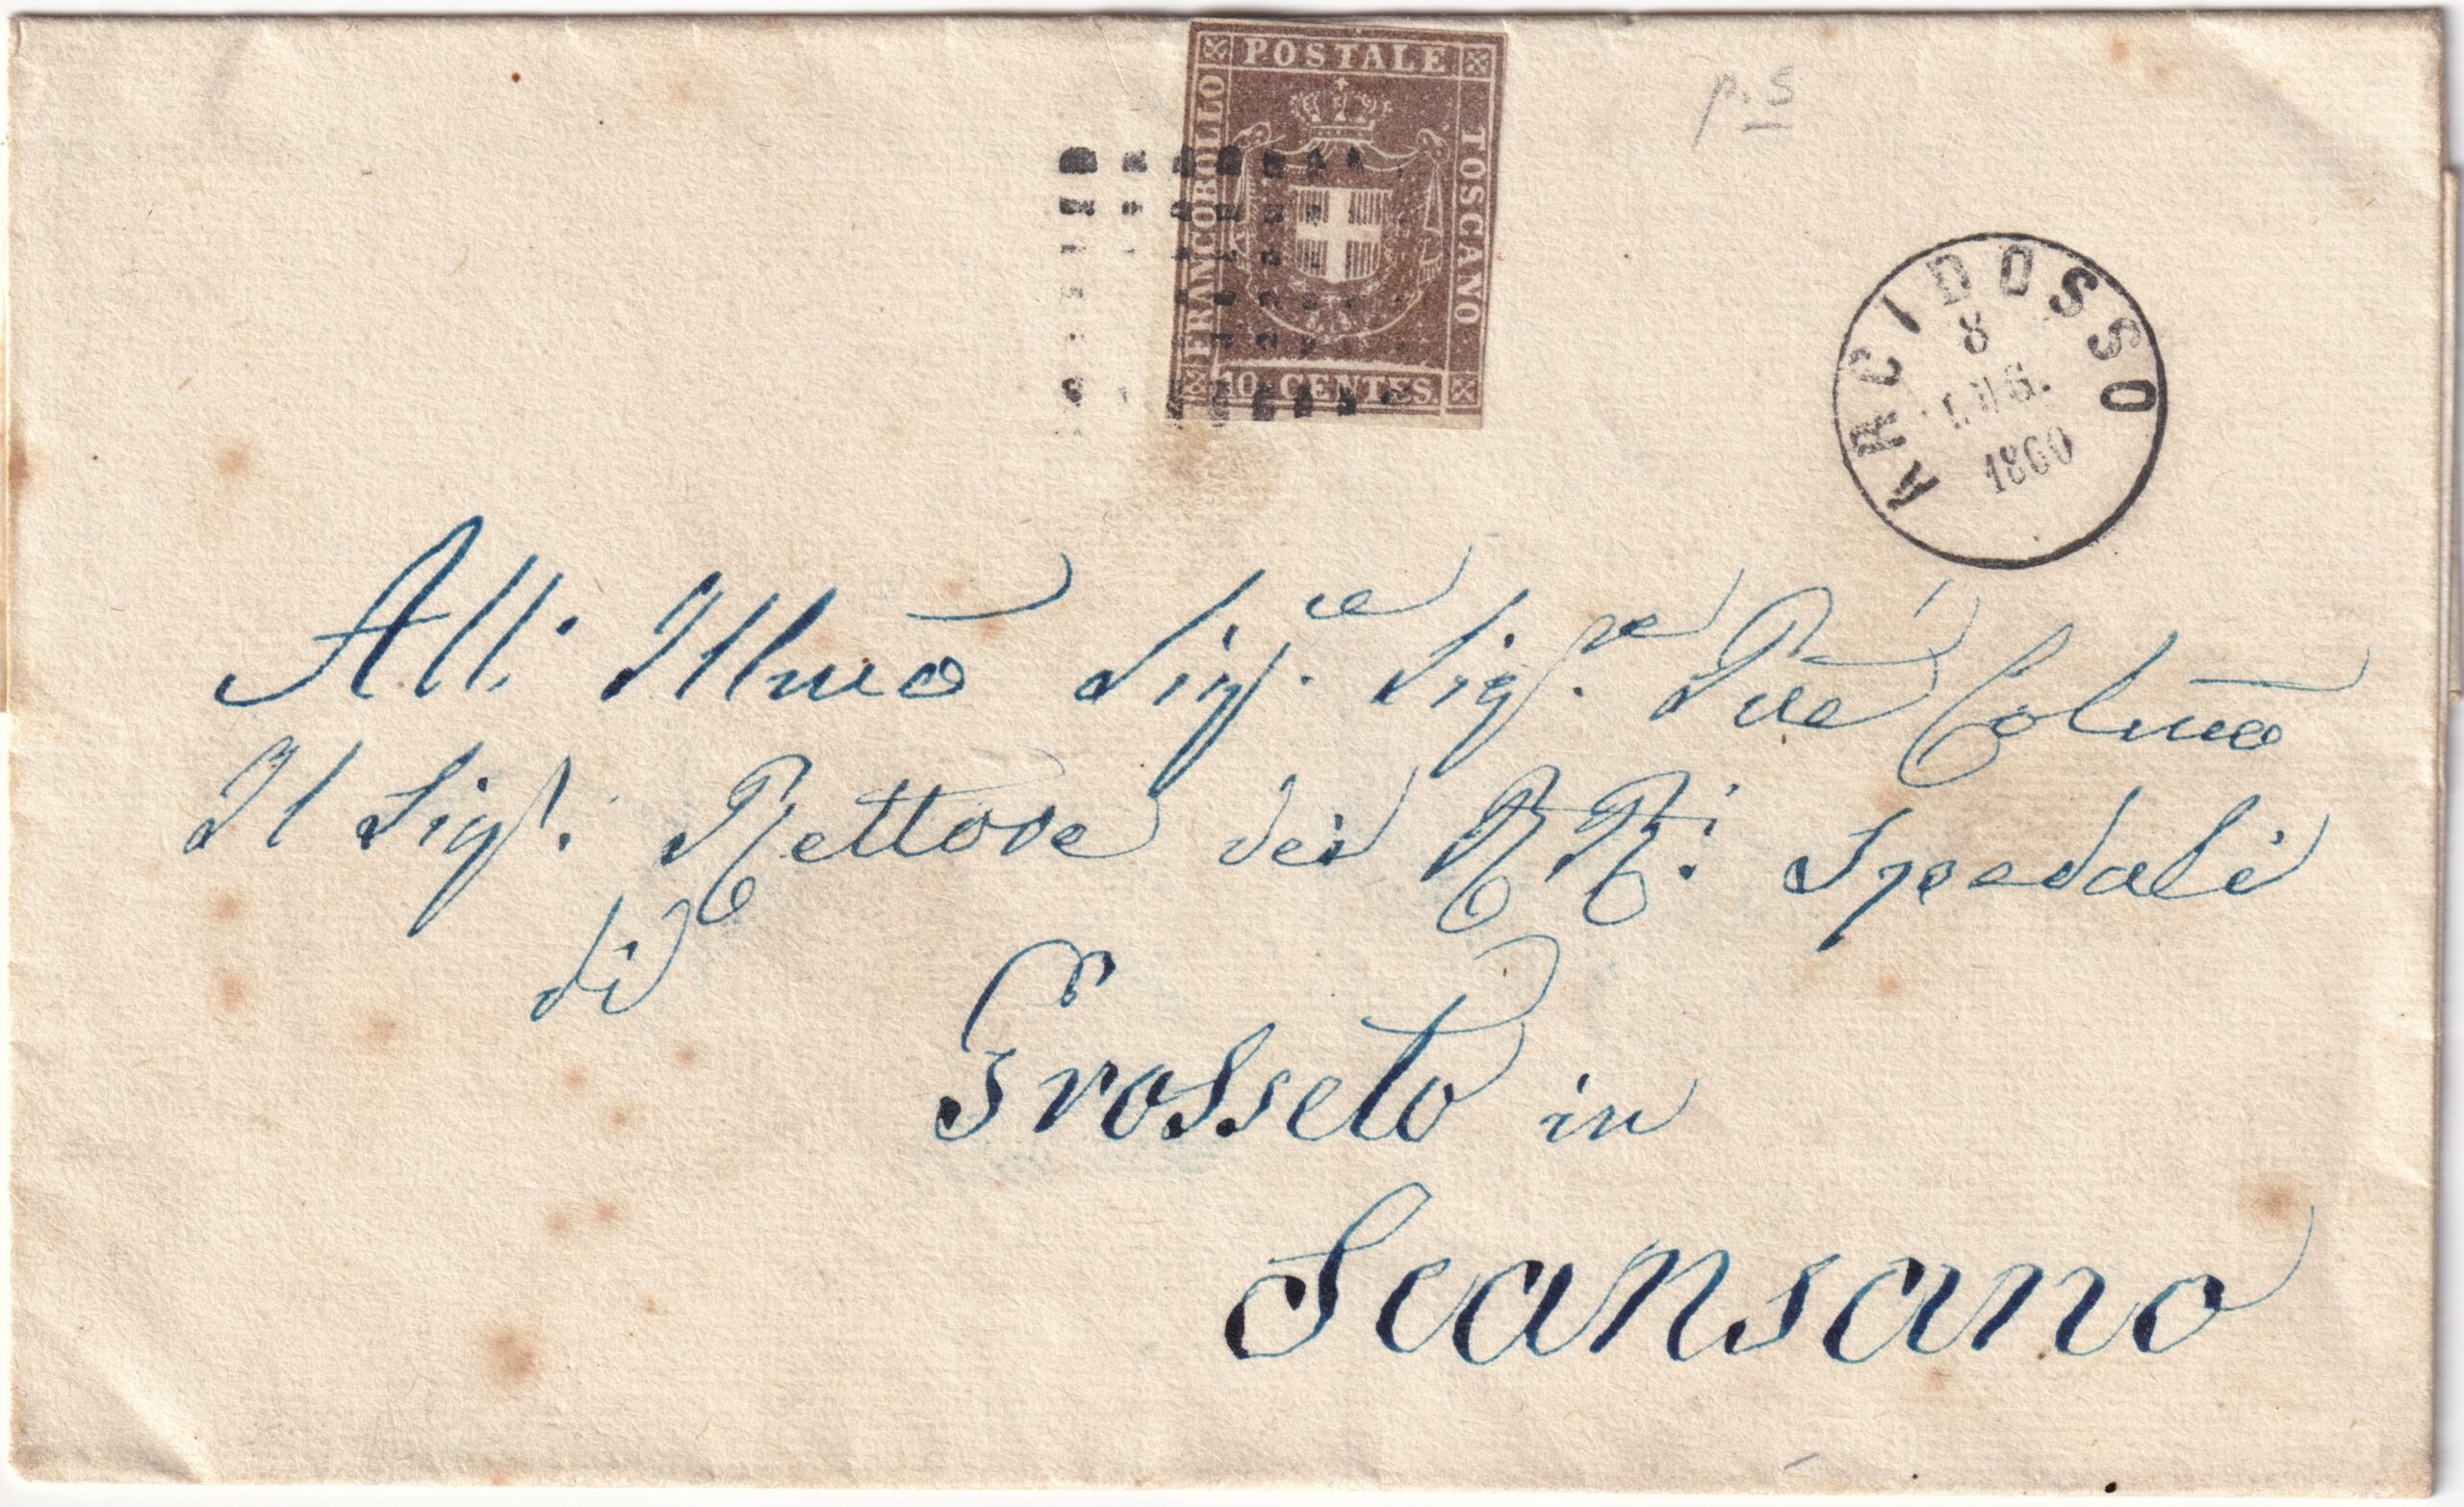 POSTALE
FRANCOBOLLO
TOSCANO
10 CENTES.
p. s
ARCIDOSSO
8
LUG.
1860
All'. Illmo Sigre. Sigre. Pne Colmo
Il Sigr. Rettore dei RRi. Spedali
di
Grosseto in
Scansano